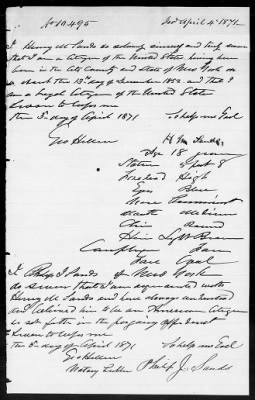 No 10.495 Iss April 4th 1871
I Henry M Sands do solemnly swear
that I am a Citizen of the United States having been
born in the City County and State of New York on
or about the 13th day of December 1852 and that I
am a loyal Citizen of the United States
the 3d day of April 1871 So help me God
Geo Hillen H M Sands
Age 18 years
Stature 5 feet 8
Forehead High
Eyes Blue
Nose Prominent
Mouth Medium
Chin Round
Hair Light Brown
Complexion
Face Oval
I Philip J Sands of New York
do swear that I am acquainted with
Henry M Sands and have always understood
and believed him to be an American Citizen
as set forth in the foregoing affidavit
the 3d day of April 1871 So help me God
Geo Hillen
Notary Public Philip J. Sands